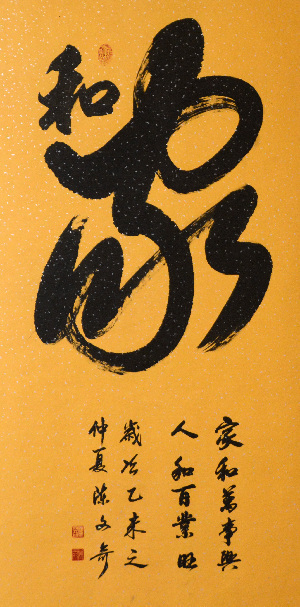 家和
家和萬事興
人和百業旺
歲次乙未之
仲夏陳文奇